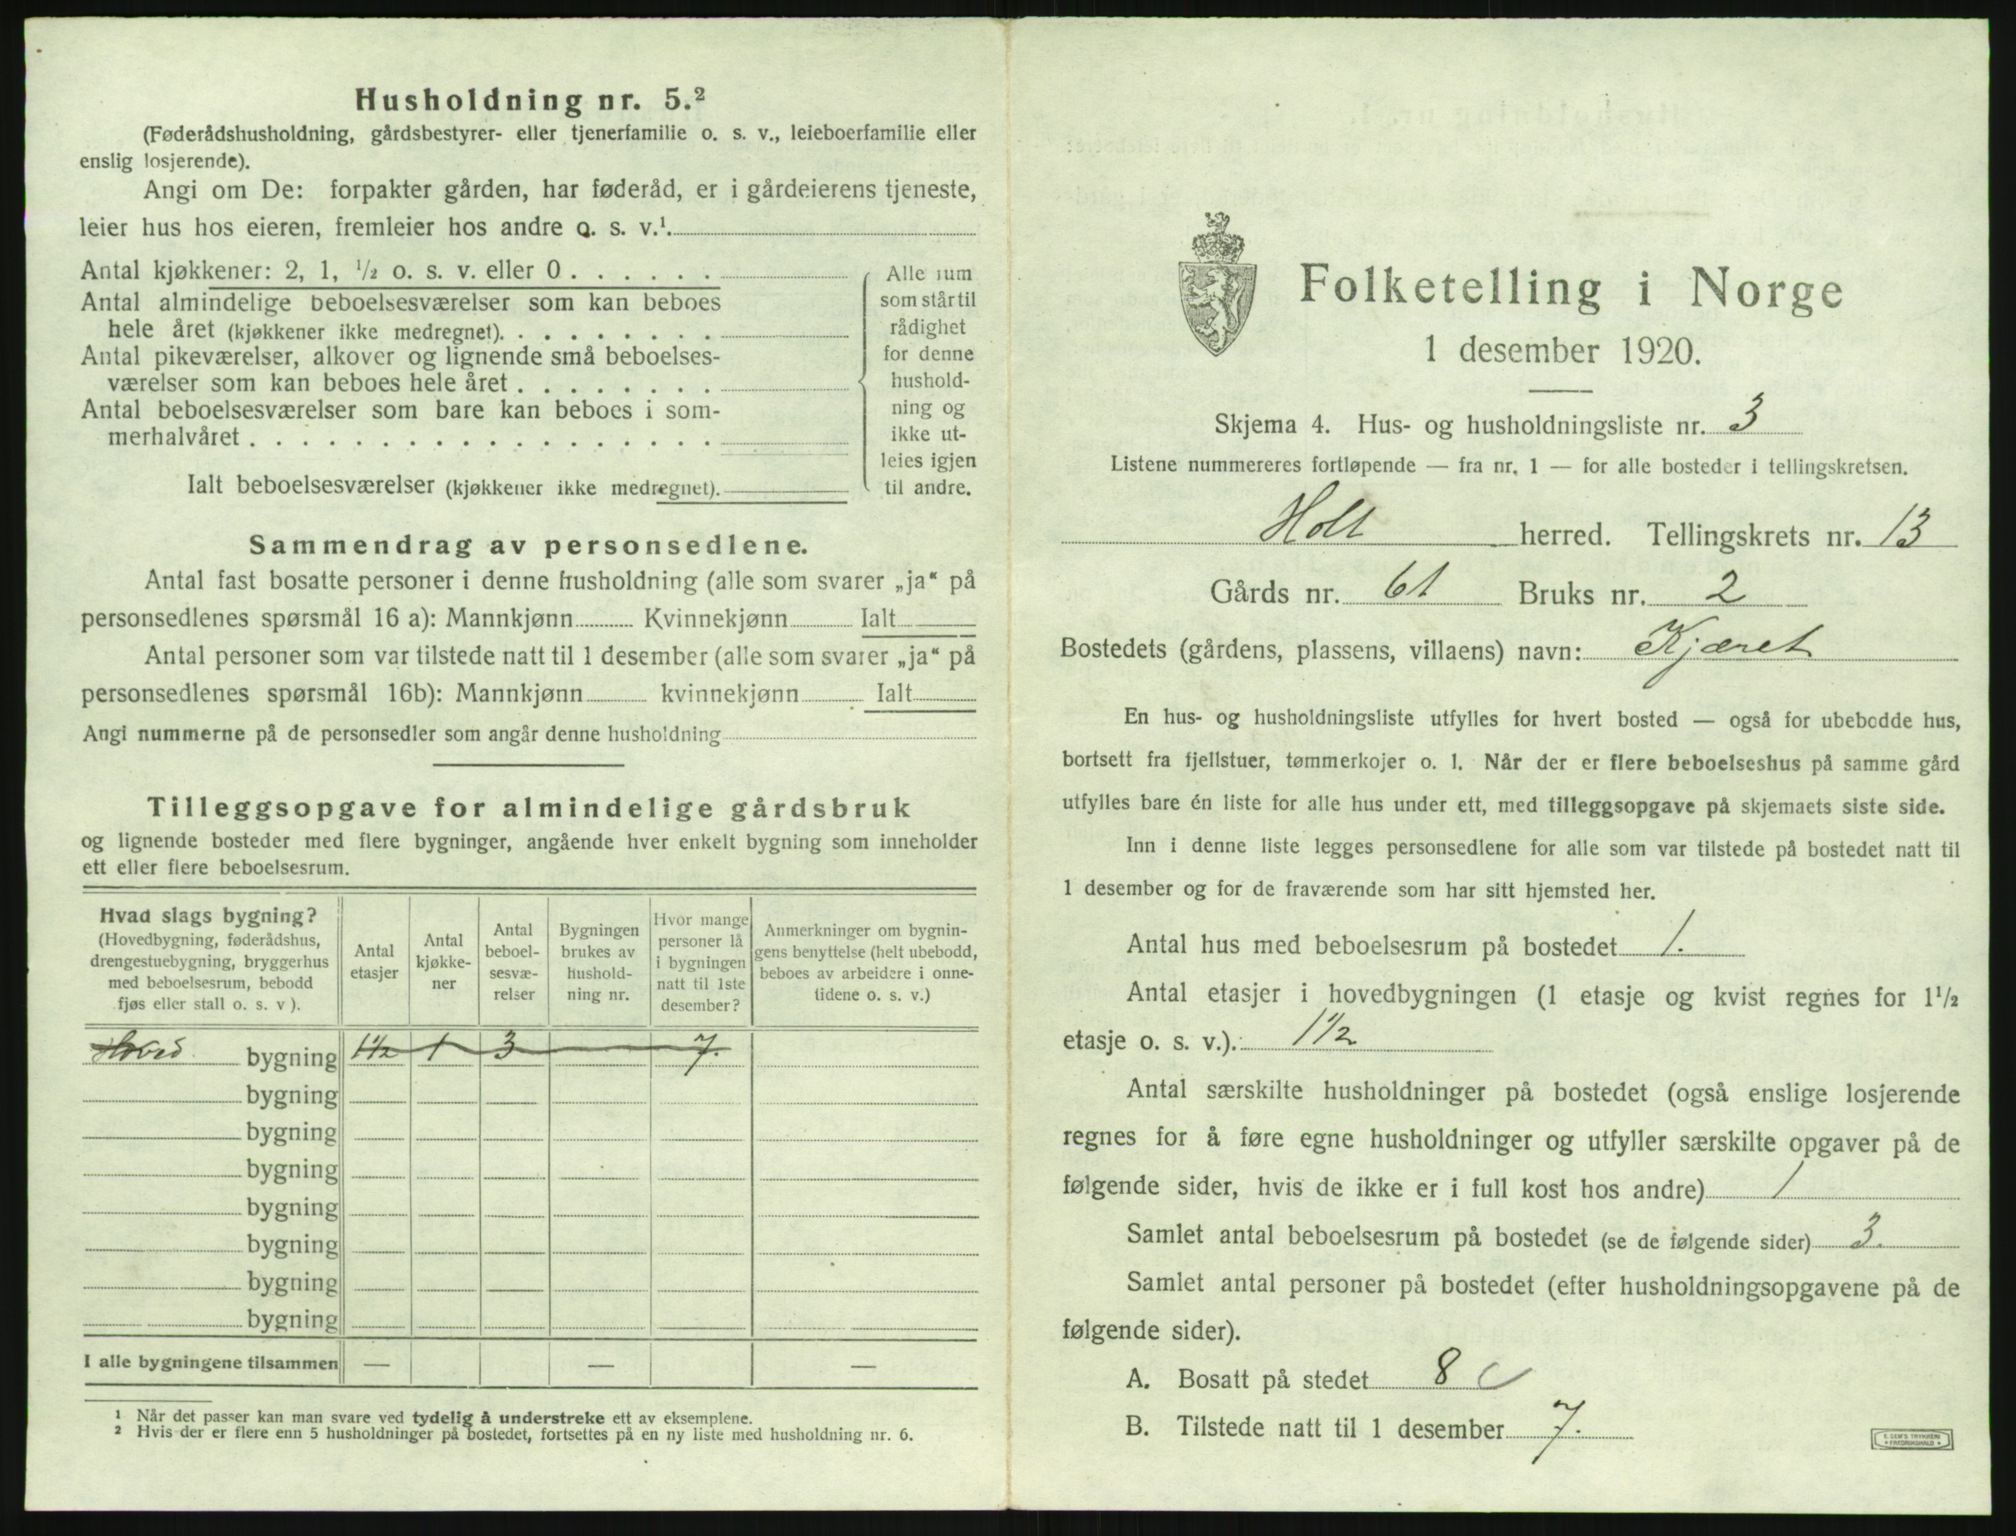 Husholdning nr. 5.²
(Føderådshusholdning, gårdsbestyrer- eller tjenerfamilie o. s. v., leieboerfamilie eller
enslig losjerende).
Angi om De: forpakter gården, har føderåd, er i gårdeierens tjeneste,
leier hus hos eieren, fremleier hos andre o. s. v.¹.
Antal kjøkkener: 2, 1, ½ o. s. v. eller 0
Antal almindelige beboelsesværelser som kan beboes
hele året (kjøkkener ikke medregnet).
Antal pikeværelser, alkover og lignende små beboelses-
værelser som kan beboes hele året
Antal beboelsesværelser som bare kan beboes i som-
merhalvåret
Ialt beboelsesværelser (kjøkkener ikke medregnet).
Alle rum
som står til
rådighet
for denne
hushold-
ning og
ikke ut-
leies igjen
til andre.
Sammendrag av personsedlene.
Antal fast bosatte personer i denne husholdning (alle som svarer „ja“ på
personsedlenes spørsmål 16 a): Mannkjønn Kvinnekjønn Ialt
Antal personer som var tilstede natt til 1 desember (alle som svarer „ja“ på
personsedlenes spørsmål 16b): Mannkjønn kvinnekjønn Ialt
Angi nummerne på de personsedler som angår denne husholdning
Tilleggsopgave for almindelige gårdsbruk
og lignende bosteder med flere bygninger, angående hver enkelt bygning som inneholder
ett eller flere beboelsesrum.
Hvad slags bygning?
(Hovedbygning, føderådshus,
drengestuebygning, bryggerhus
med beboelsesrum, bebodd
fjøs eller stall o. s. v ).
Antal
etasjer
Antal
kjøkke-
ner
Antal
beboel-
sesvæ-
relser
Bygningen
brukes av
hushold-
ning nr.
Hvor mange
personer lå
i bygningen
natt til 1ste
desember?
Anmerkninger om bygnin-
gens benyttelse (helt ubebodd,
beboes av arbeidere i onne-
tidene o. s. v.)
Hoved bygning 1½ 1 3 7.
bygning
bygning
bygning
bygning
bygning
bygning
bygning
I alle bygningene tilsammen — — —
¹ Når det passer kan man svare ved tydelig å understreke ett av eksemplene.
² Hvis der er flere enn 5 husholdninger på bostedet, fortsettes på en ny liste med husholdning nr. 6.
Folketelling i Norge
1 desember 1920.
Skjema 4. Hus- og husholdningsliste nr. 3
Listene nummereres fortløpende — fra nr. 1 — for alle bosteder i tellingskretsen.
Holt herred. Tellingskrets nr. 13
Gårds nr. 61 Bruks nr. 2
Bostedets (gårdens, plassens, villaens) navn: Kjæret
En hus- og husholdningsliste utfylles for hvert bosted — også for ubebodde hus,
bortsett fra fjellstuer, tømmerkojer o. l. Når der er flere beboelseshus på samme gård
utfylles bare én liste for alle hus under ett, med tilleggsopgave på skjemaets siste side.
Inn i denne liste legges personsedlene for alle som var tilstede på bostedet natt til
1 desember og for de fraværende som har sitt hjemsted her.
Antal hus med beboelsesrum på bostedet 1.
Antal etasjer i hovedbygningen (1 etasje og kvist regnes for 1½
etasje o. s. v.). 1½
Antal særskilte husholdninger på bostedet (også enslige losjerende
regnes for å føre egne husholdninger og utfyller særskilte opgaver på de
følgende sider, hvis de ikke er i full kost hos andre) 1
Samlet antal beboelsesrum på bostedet (se de følgende sider) 3.
Samlet antal personer på bostedet (efter husholdningsopgavene på de
følgende sider).
A. Bosatt på stedet 8
B. Tilstede natt til 1 desember 7.
E. SEM'S TRYKKERI
FREDRIKSHALD